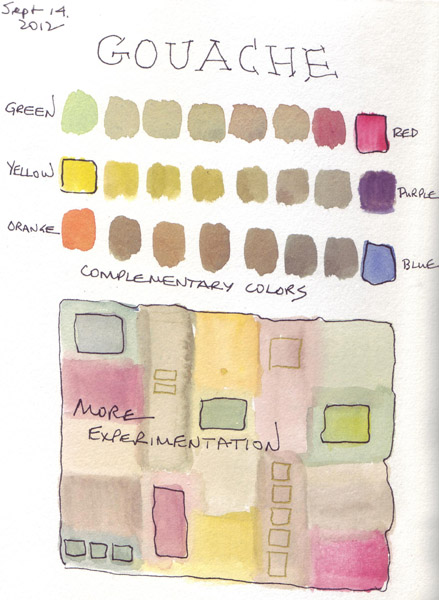 Sept 14.
2012
GOUACHE
GREEN
RED
YELLOW
PURPLE
ORANGE
BLUE
COMPLEMENTARY COLORS
MORE
EXPERIMENTATION